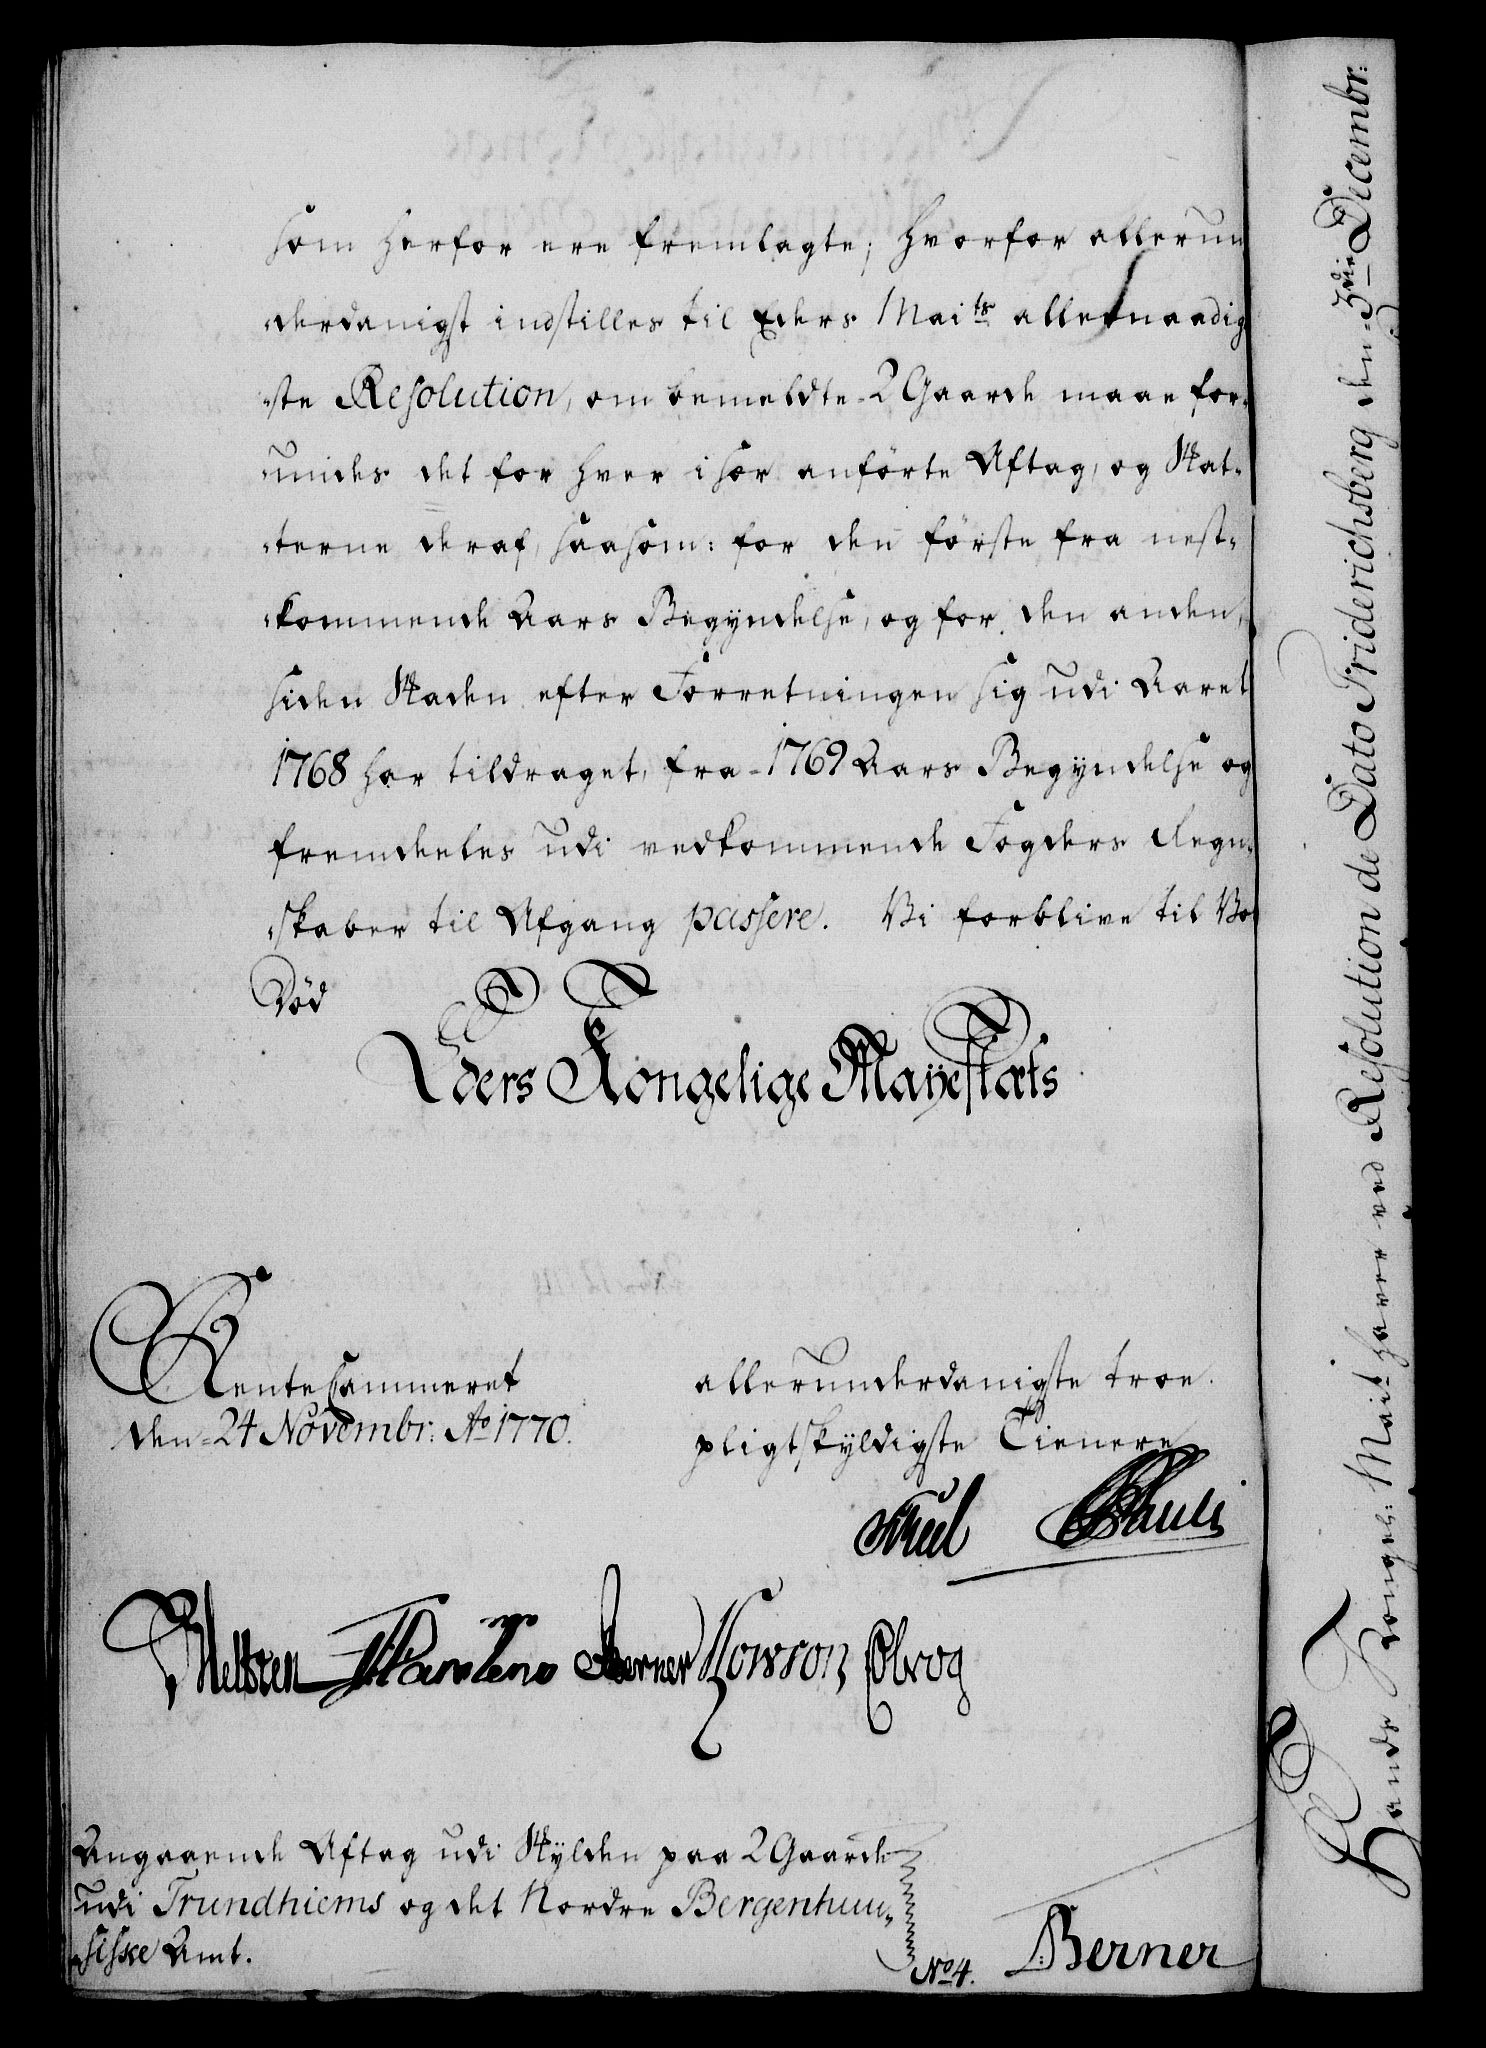 som herfor ere fremlagte; hvorfor allerun
derdanigst indstilles til Eders Maits allernaadig
ste Resolution, om bemeldte 2 Gaarde maae for-
undes det for hver især anførte Aftag, og Skat-
terne deraf, saasom: for den første fra nest-
kommende Aars Begyndelse, og for den anden,
siden Skaden efter Forretningen sig udi Aaret
1768 har tildraget, fra 1769 Aars Begyndelse og
fremdeeles udi vedkommende Fogders Regn-
skaber til Afgang passere. Vi forblive til Vor
Død
Eders Kongelige Mayestæts
RenteCammeret
den 24 Novembr: Ao 1770.
allerunderdanigste troe
pligtskyldigste Tienere
Pauli
Berner Kowson Obrog
Angaaende Aftag udi Skylden paa 2 Gaarde
udi Trundhiems og det Nordre Bergenhuu-
siske Amt.
No 4.
Berner
Hands Kongel: Mait haver ved Resolution de Dato Friderichsberg den 3die Decembr: